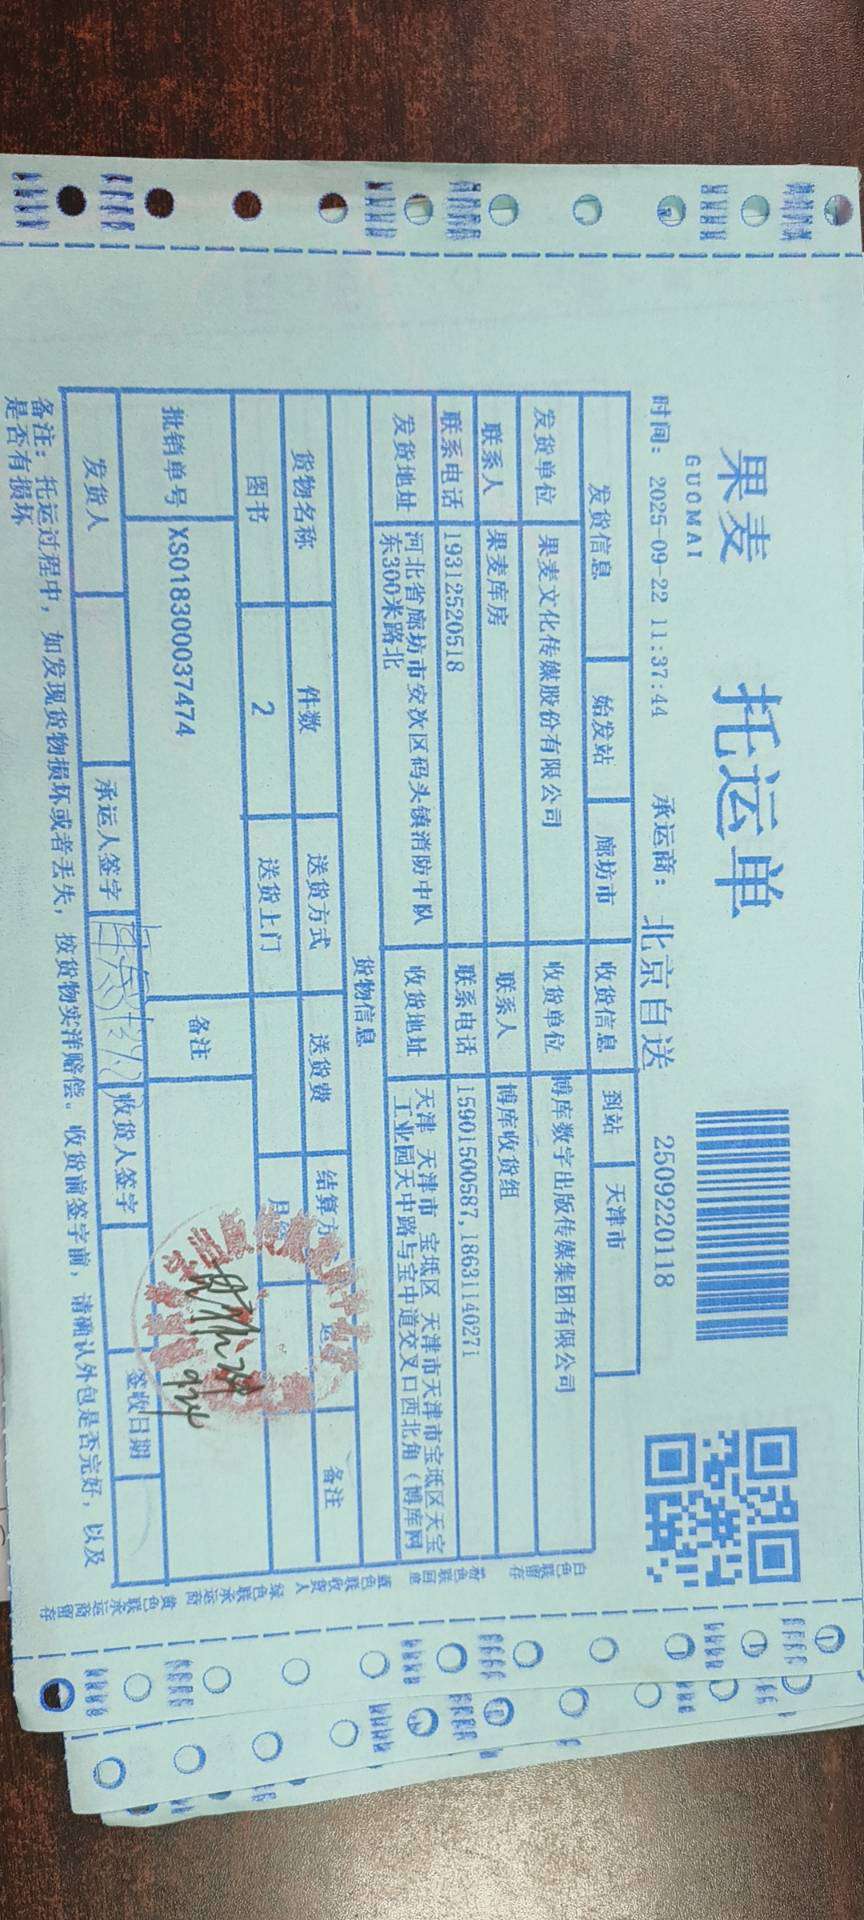 果麦
GUOMAI
托运单
时间: 2025-09-22 11:37:44 承运商: 北京自送 2509220118
发货信息 始发站 廊坊市 收货信息 到站 天津市
发货单位 果麦文化传媒股份有限公司 收货单位 博库数字出版传媒集团有限公司
联系人 果麦库房 联系人 博库收货组
联系电话 19312520518 联系电话 15901500587,18631140271
发货地址 河北省廊坊市安次区码头镇消防中队东300米路北 收货地址 天津 天津市 宝坻区 天津市天津市宝坻区天宝工业园天中路与宝中道交叉口西北角(博库网
货物信息
货物名称 件数 送货方式 送货费 结算方 运 备注
图书 2 送货上门 月结
批销单号 XS018300037474 备注
发货人 承运人签字 收货人签字 签收日期
备注: 托运过程中, 如发现货物损坏或者丢失, 按货物实洋赔偿。收货前签字前, 请确认外包是否完好, 以及
是否有损坏
白色联留存 粉色联回单 蓝色联收货人 绿色联承运商 黄色联承运商留存
924